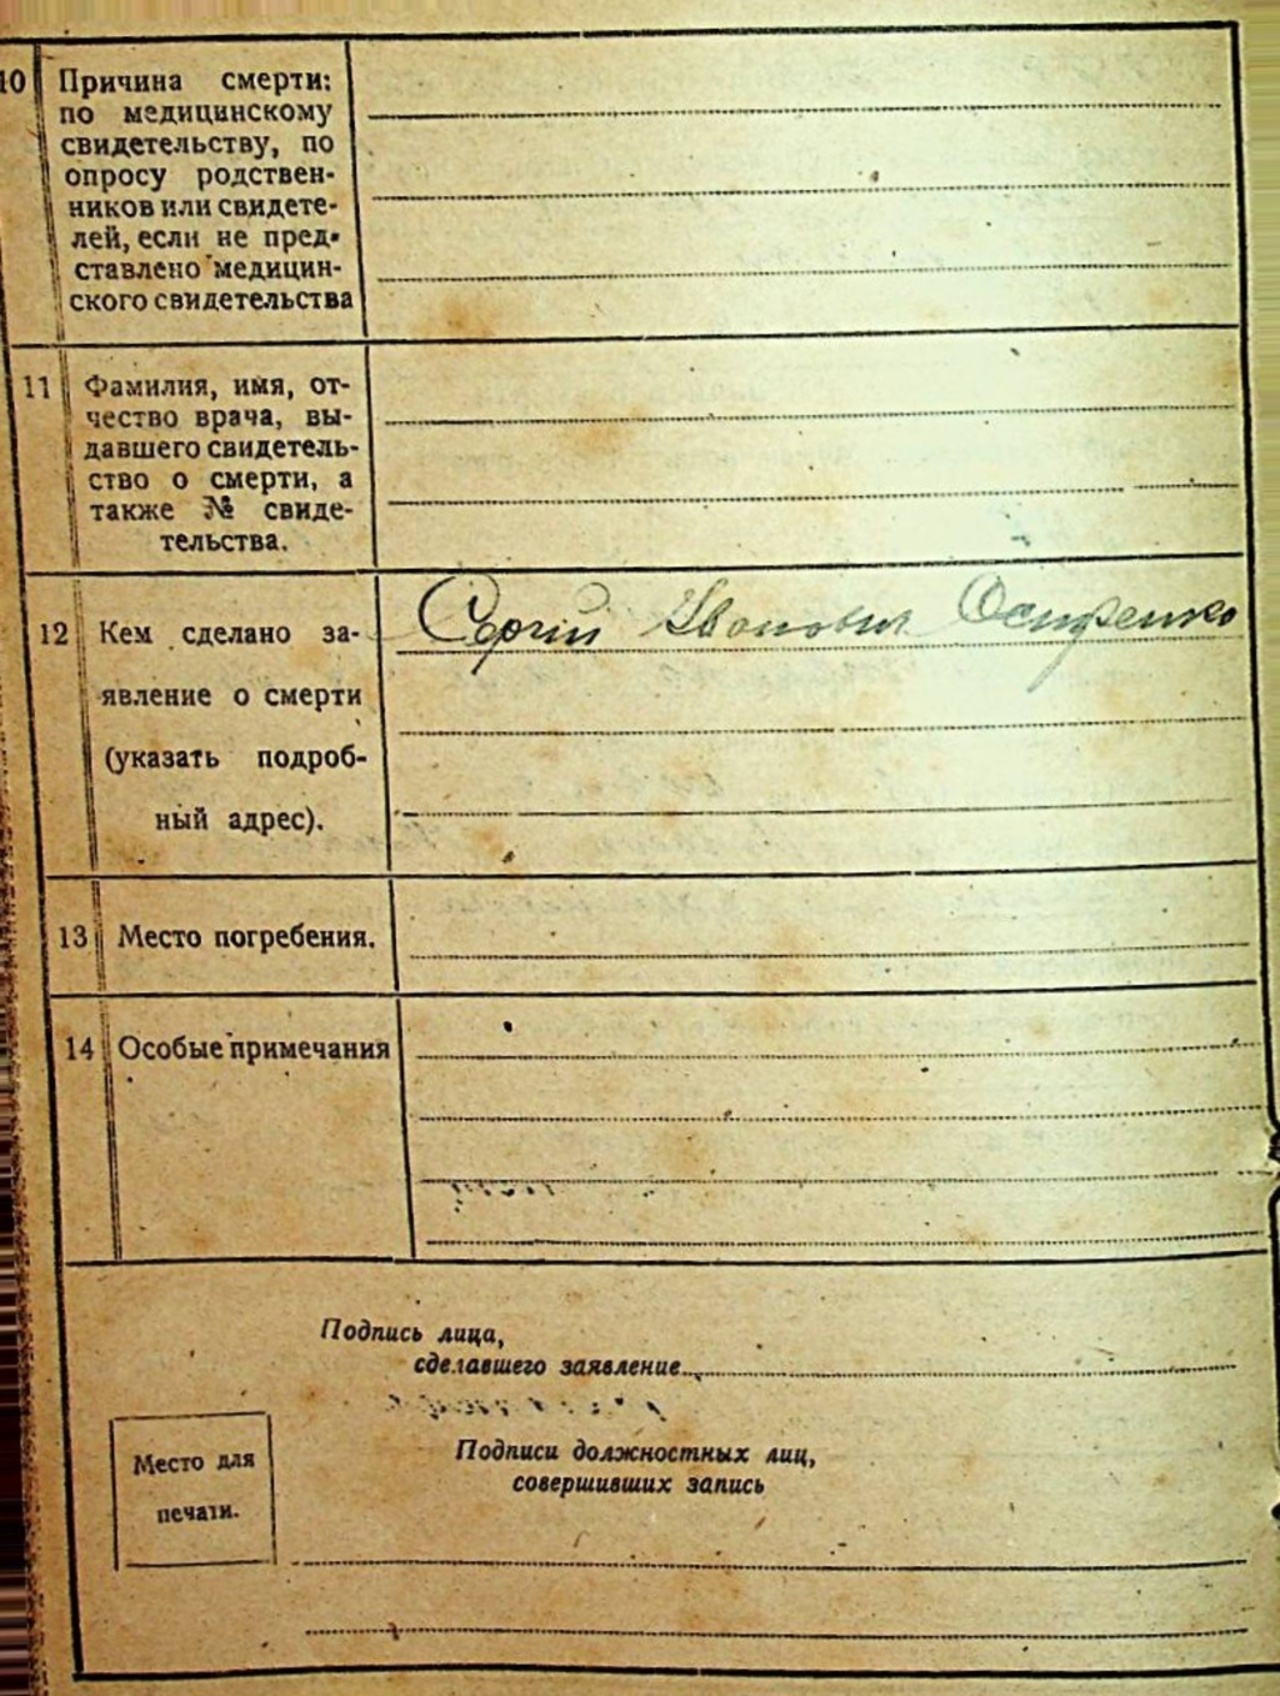 10 Причина смерти:
по медицинскому
свидетельству, по
опросу родствен-
ников или свидете-
лей, если не пред-
ставлено медицин-
ского свидетельства
11 Фамилия, имя, от-
чество врача, вы-
давшего свидетель-
ство о смерти, а
также № свиде-
тельства.
12 Кем сделано за-
явление о смерти
(указать подроб-
ный адрес).
Сергій Иванович
13 Место погребения.
14 Особые примечания
Подпись лица,
сделавшего заявление
Подписи должностных лиц,
совершивших запись
Место для
печати.